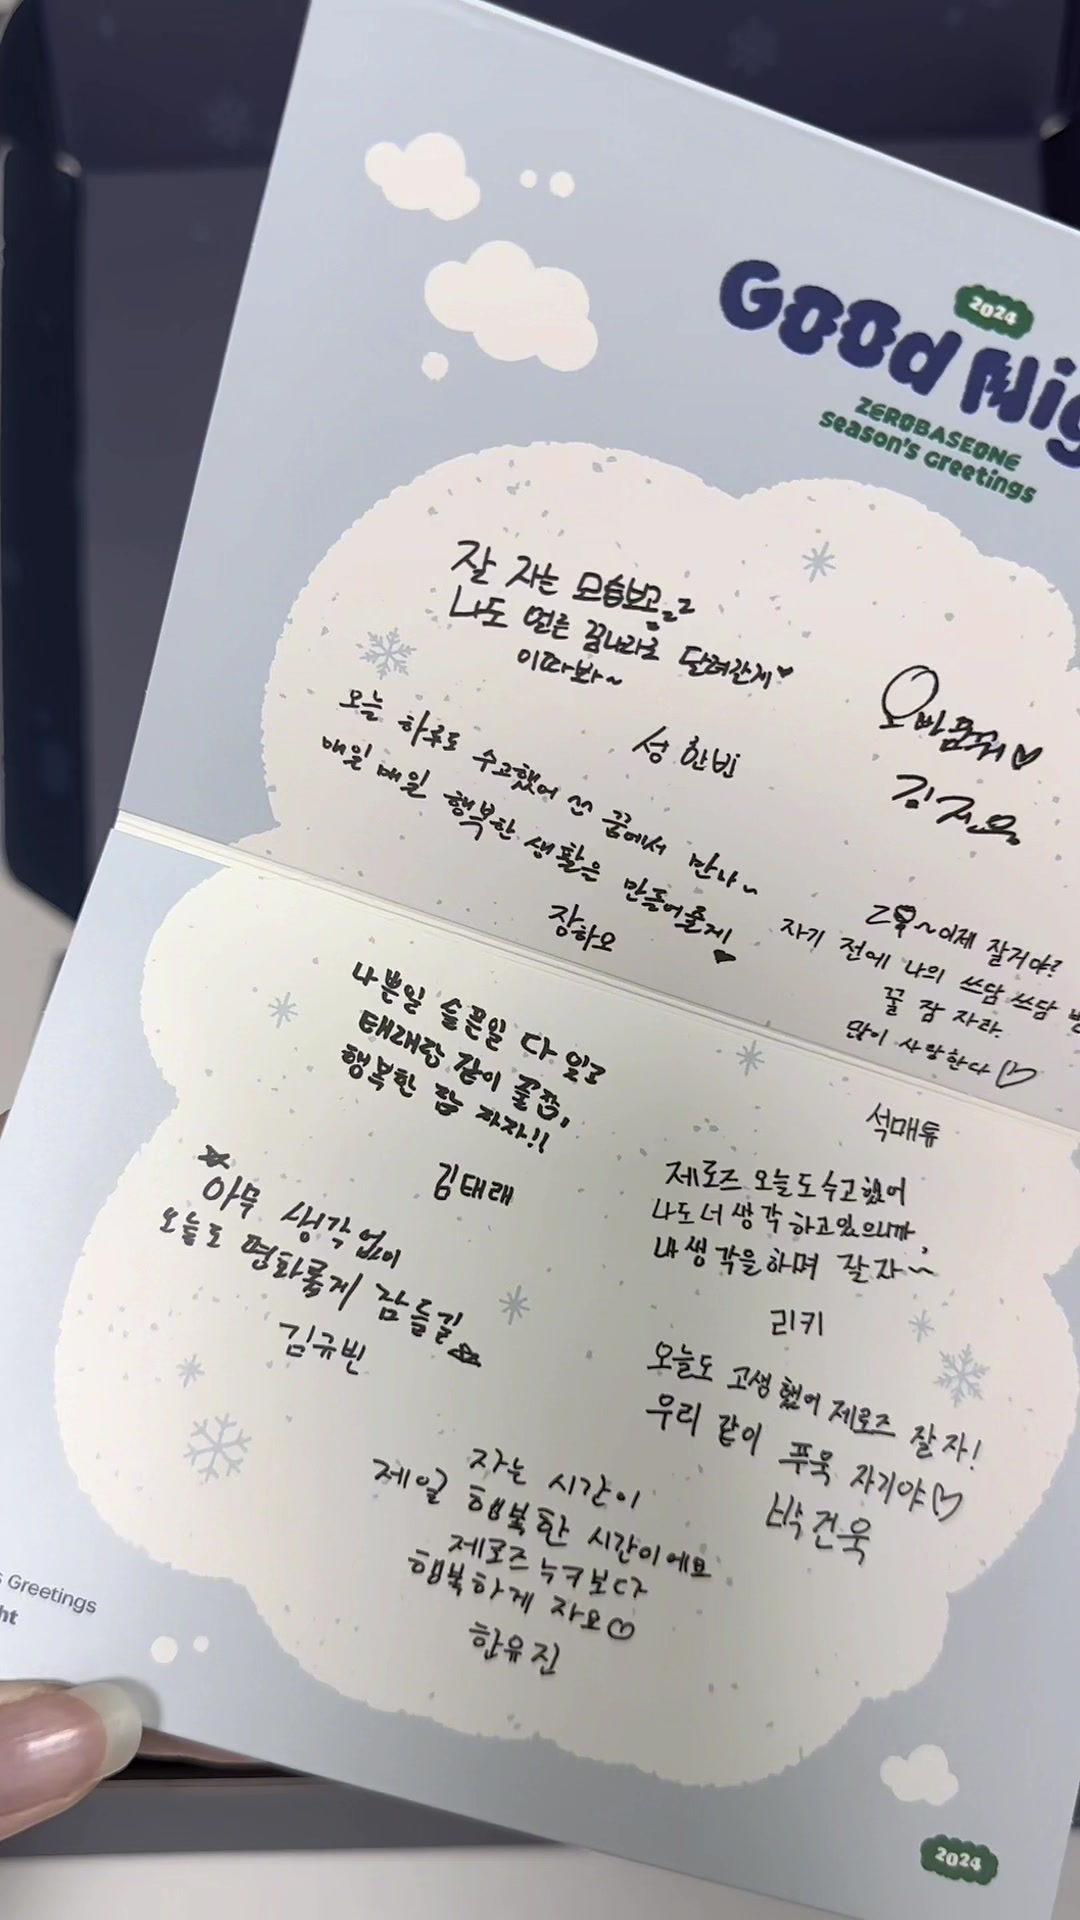 2024
Good Nig
ZEROBASEONE
season's greetings
잘 자는 모습보고zz
나도 얼른 꿈나라로 달려갈게♥
이따봐~
성한빈
오밤꿈꿔♡
김지웅
오늘 하루도 수고했어 쓴 꿈에서 만나~
매일 매일 행복한 생활은 만들어줄게♥
장하오
이제 잘거야?
자기 전에 나의 쓰담 쓰담
꿀 잠 자라.
많이 사랑한다♡
석매튜
나쁜일 슬픈일 다 잊고
태래랑 같이 꿀잠,
행복한 잠 자자!!
김태래
제로즈 오늘도 수고했어
나도 너 생각 하고있으니까,
내 생각을 하며 잘자~
리키
☆아무 생각 없이
오늘도 평화롭게 잠들길☆
김규빈
오늘도 고생했어 제로즈 잘자!
우리 같이 푸욱 자기야♡
박건욱
자는 시간이
제일 행복한 시간이에요
제로즈 누구보다
행복하게 자요♡
한유진
s Greetings
ht
2024